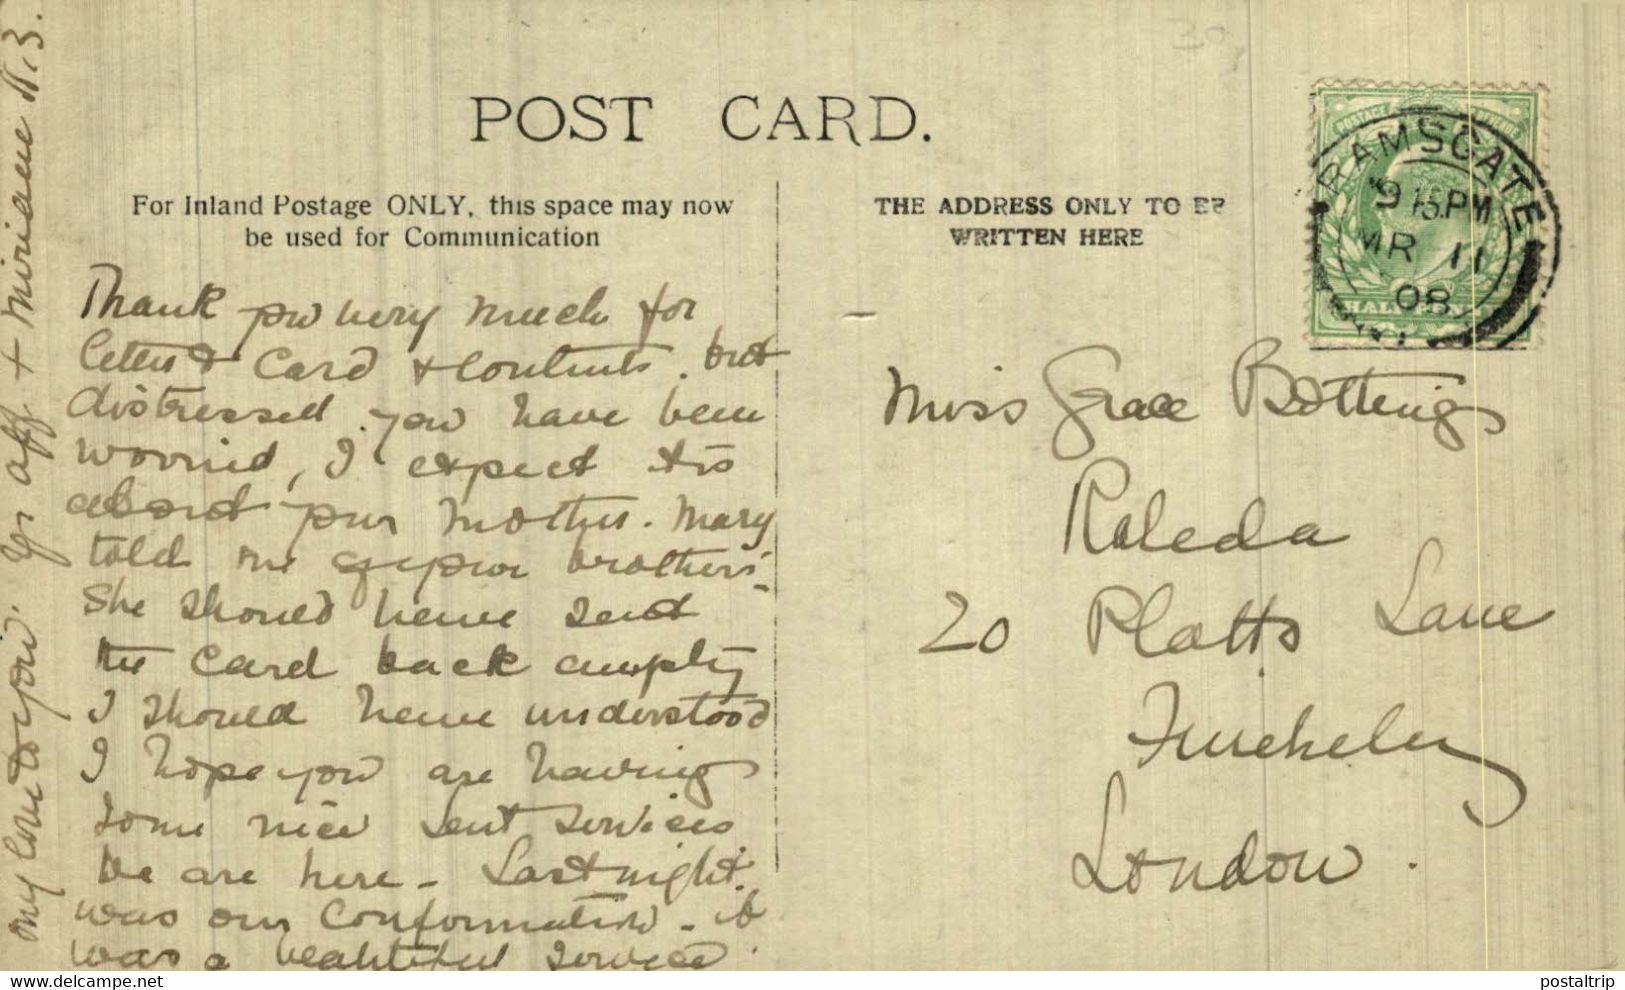 POST CARD.
For Inland Postage ONLY, this space may now
be used for Communication
THE ADDRESS ONLY TO BE
WRITTEN HERE
RAMSGATE
9 15 PM
MR 11
08
Thank you very much for
letter & Card & contents. but
distressed you have been
worried, I expect its
about your Mother. Mary
told me of your brothers.
She should have sent
the Card back empty
I should have understood
I hope you are having
some nice Lent services
We are here - Last night
was our Confirmation - it
was a beautiful service
my love to you. yr aff +
Miss Grace Botting
Roleda
20 Platts Lane
Finchley
London.
postaltrip